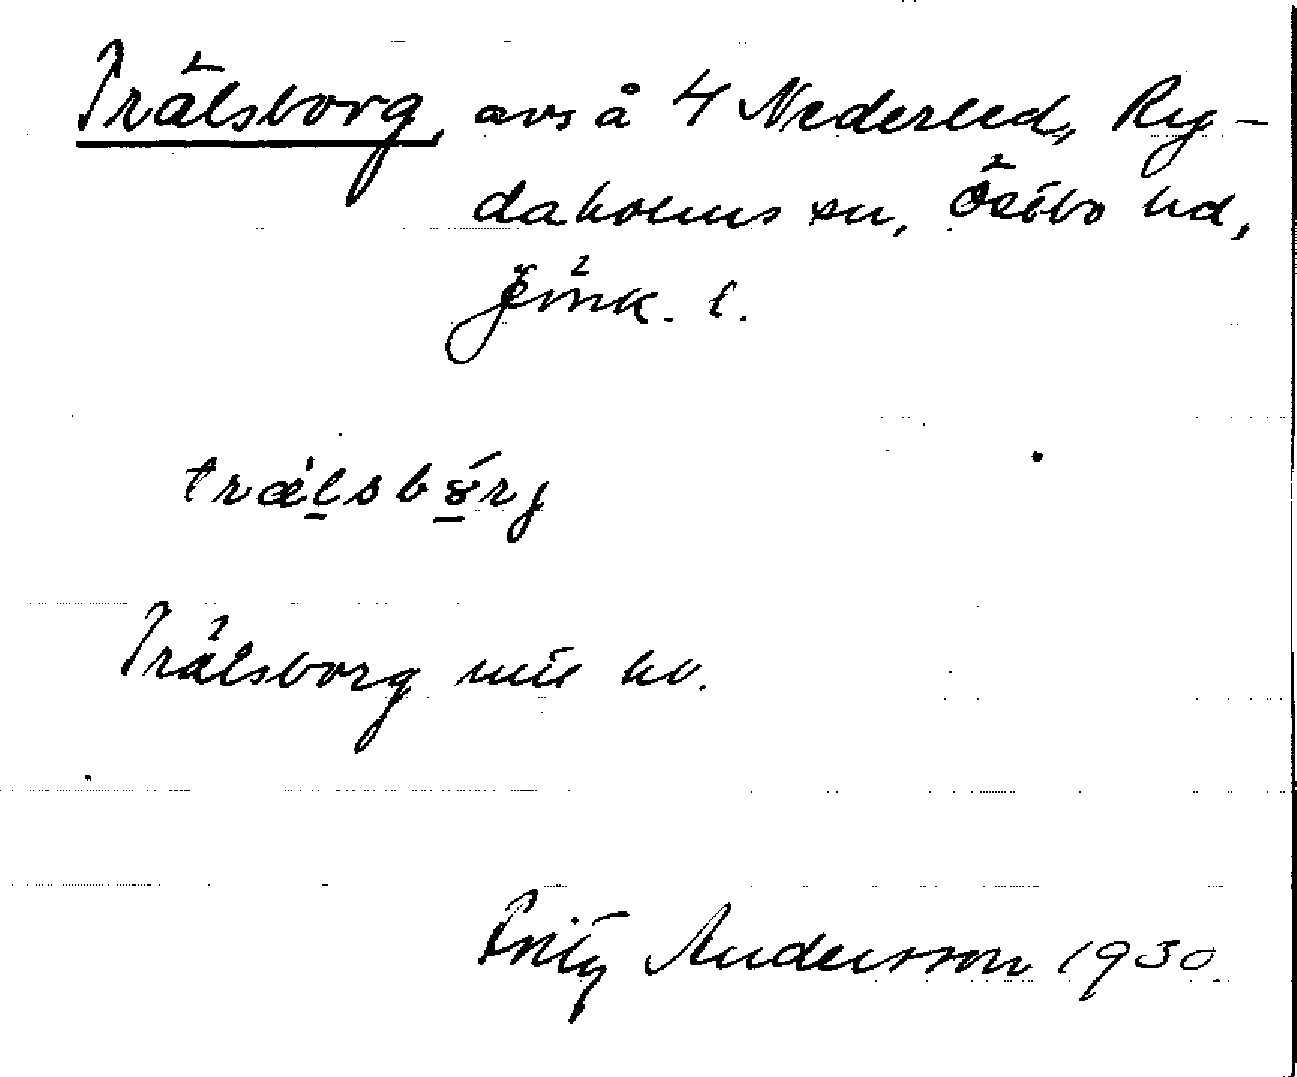 Trälsborg, avs å 4 Nederled, Ry-
daholms sn, Östbo hd,
Jönk. l.
trälsbórj
Trälsborg mil kv.
Fritz Andersson 1930.